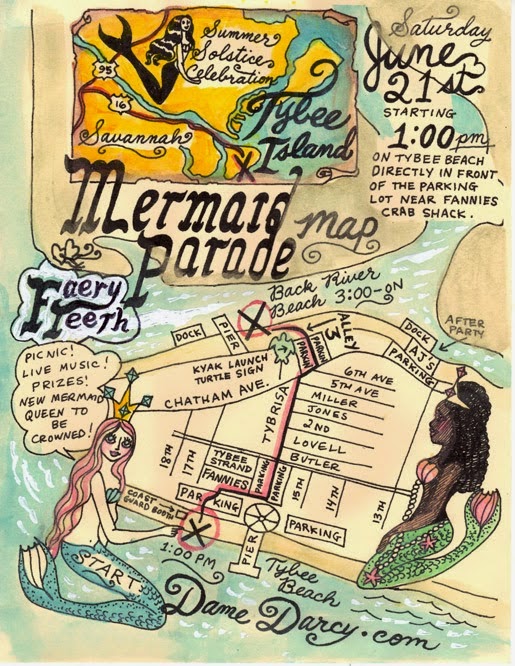 Summer
Solstice
Celebration
95
16
Savannah
Tybee
Island
Saturday
June
21st
STARTING
1:00pm
ON TYBEE BEACH
DIRECTLY IN FRONT
OF THE PARKING
LOT NEAR FANNIES
CRAB SHACK.
Mermaid
Parade
map
Faery
Teeth
Back River
Beach 3:00-ON
AFTER
PARTY
PICNIC!
LIVE MUSIC!
PRIZES!
NEW MERMAID
QUEEN TO
BE
CROWNED!
DOCK
PIER
X
PARKIN
PARKIN
ALLEY
3
DOCK
AJ'S
PARKING
KYAK LAUNCH
TURTLE SIGN
CHATHAM AVE.
TYBRISA
6TH AVE
5TH AVE
MILLER
JONES
2ND
LOVELL
BUTLER
18TH
17TH
TYBEE
STRAND
FANNIES
PARKING
PARKING
PARKING
15TH
14TH
13TH
COAST
GUARD BOOTH
X
1:00 PM
PIER
PARKING
Tybee
Beach
START!
Dame Darcy.com